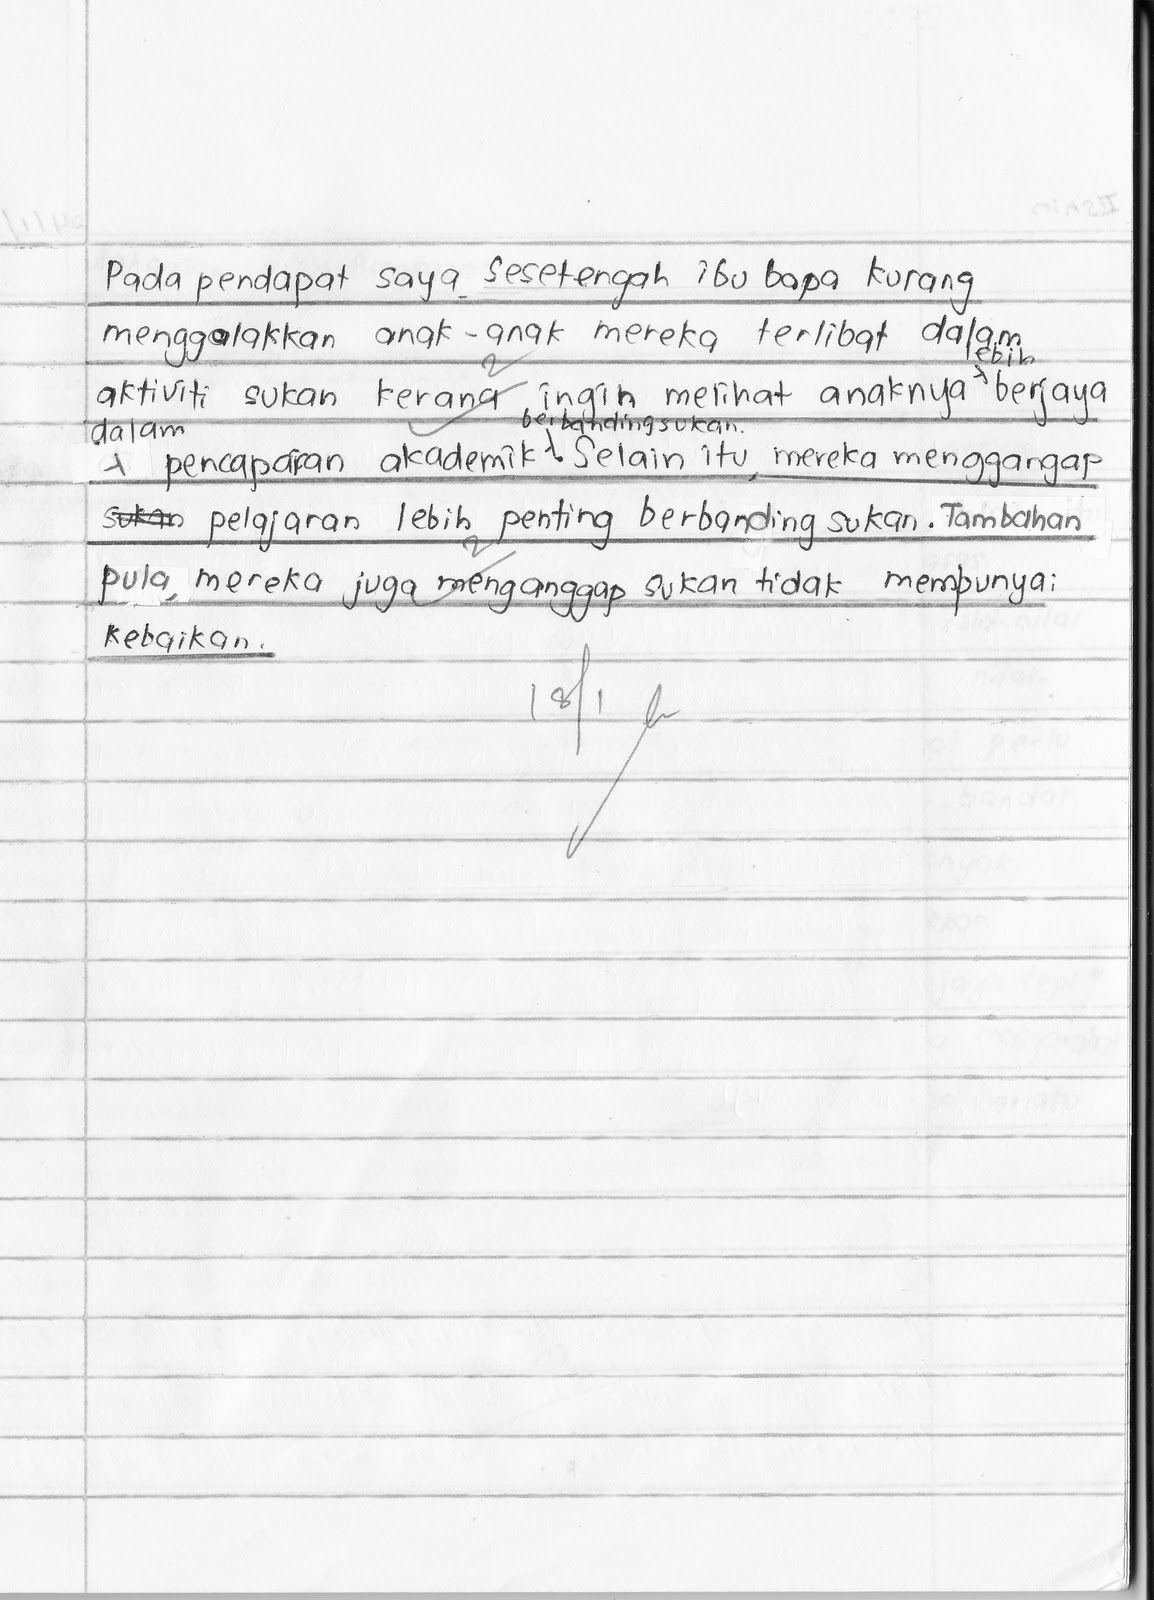 Pada pendapat saya, sesetengah ibu bapa kurang
menggalakkan anak-anak mereka terlibat dalam
lebih
aktiviti sukan kerana 2 ingin melihat anaknya berjaya
dalam berbanding sukan.
pencapaian akademik. Selain itu, mereka menggangap
sukan pelajaran lebih penting berbanding sukan. Tambahan
2
pula, mereka juga menganggap sukan tidak mempunyai
kebaikan.
18/1